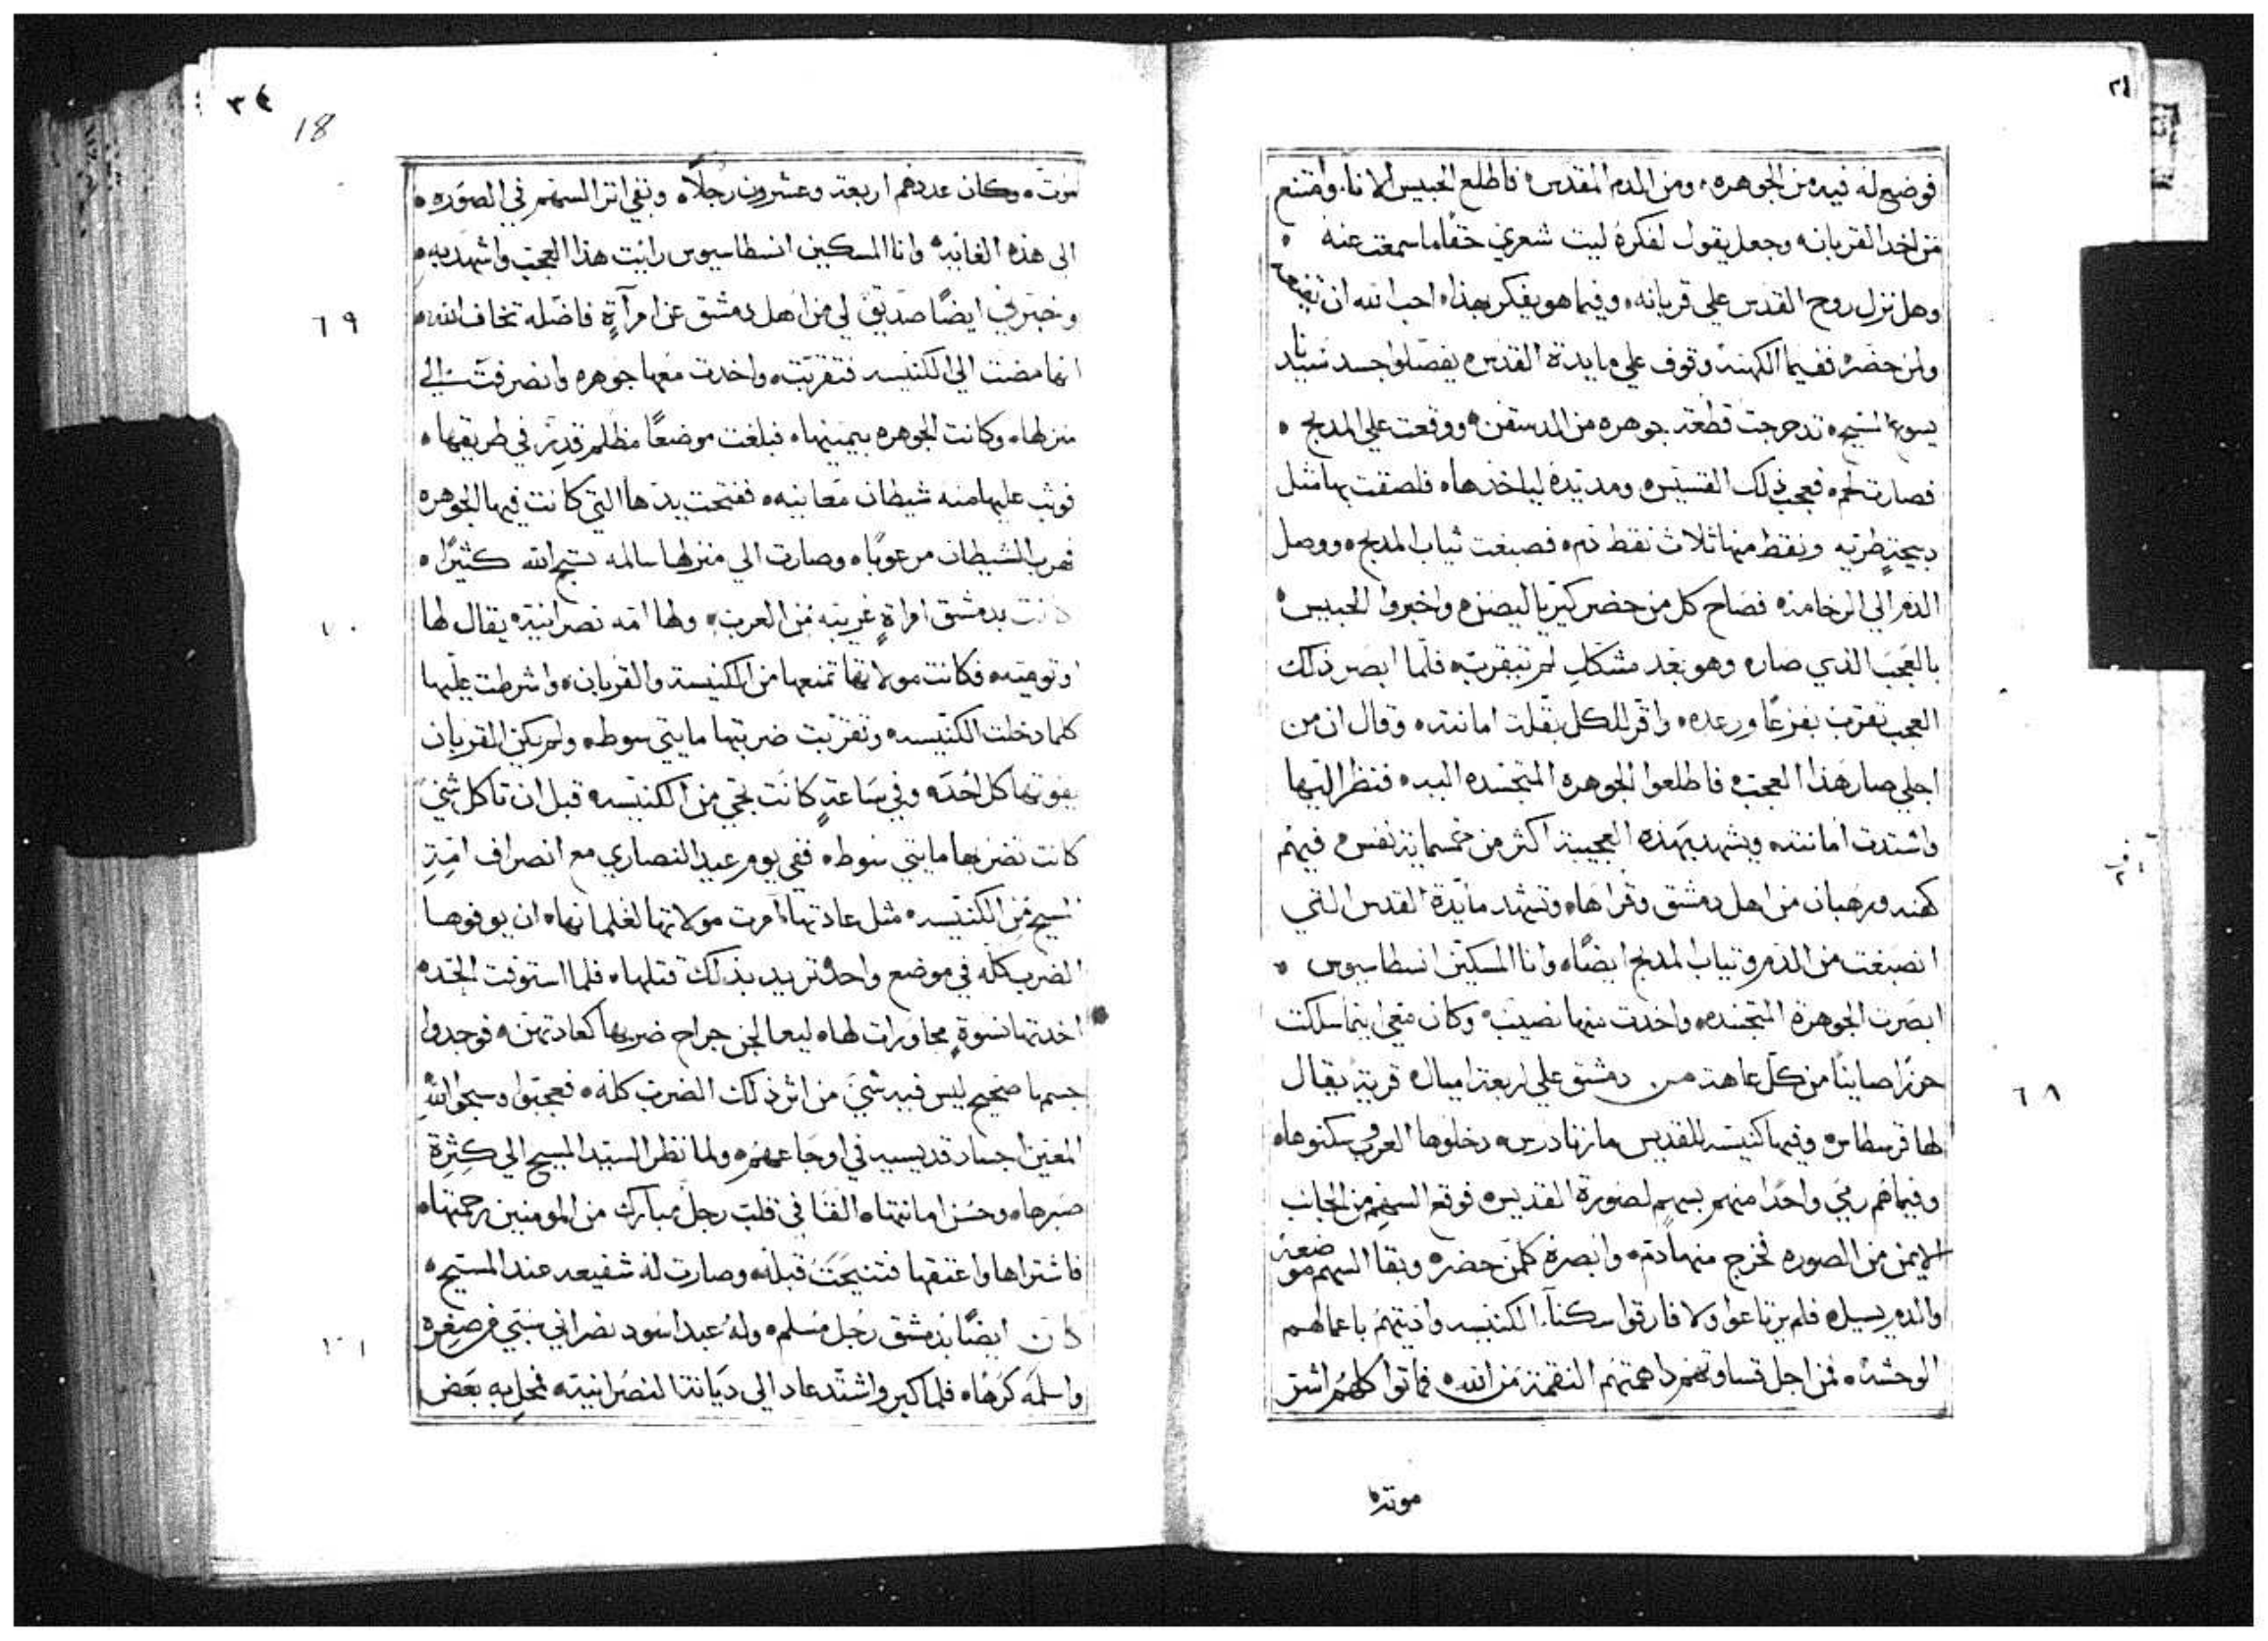 ٣٤
فوضع له فيه من الجوهره ومن الدم المقدس فاطلع الحبيس الانا وامتنع
من اخد القربانه وجعل يقول لفكره ليت شعري حقًا ما سمعت عنه
وهل نزل روح القدس علي قربانه وفيما هو يفكر بهذا احب الله ان
ولمن حضره ففيما الكهنه وقوف علي مايدة القدس يفصلوا جسد سيدنا
يسوع المسيح تدحرجت قطعة جوهره من الدسقس ووقعت علي المدبح
فصارت لحم فعجب ذلك القسيس ومد يده لياخذها فلصقت بها مثل
دبيحة طريه ونقط منها ثلاث نقط دم فصبغت ثياب المدبح ووصل
الدم الي الرخامه فصاح كل من حضر كيرياليصن واخبروا الحبيس
بالعجب الذي صار وهو بعد مشكك لم يتقرب فلما ابصر ذلك
العجب تقرب بفزعًا ورعده واقر للكل بقلت امانته وقال ان من
اجلي صار هذا العجب فاطلعوا الجوهره المتجسده اليه فنظر اليها
واشتدت امانته ويشهد بهذه العجيبة اكثر من خمسماية نفس فيهم
كهنه ورهبان من اهل دمشق وقراها وتشهد مايدة القدس التي
انصبغت من الدم وثياب المدبح ايضًا وانا المسكين انسطاسيوس
ابصرت الجوهرة المتجسده واخدت منها نصيب وكان معي اينما سلكت
حرزا صاينًا من كل عاهة من دمشق علي اربعة اميال قرية يقال
٦٨
لها قرسطا وفيها كنيسه للقديس مارتادرس دخلوها العرب وسكنوها
وفيما هم رمي واحدًا منهم بسهم لصورة القديس فوقع السهم من الجانب
الايمن من الصوره فخرج منها دم وابصره كلمن حضر وبقا السهم موضعه
والدم يسيل فلم يرتاعوا ولا فارقوا سكنا الكنيسه واديتهم باعمالهم
الوحشه فمن اجل قساوتهم داهمتهم النقمة من الله فماتوا كلهم اشر
موته
٣٤
18
موته وكان عددهم اربعة وعشرون رجلًا وبقي اتر السهم في الصوره
الى هذه الغايه وانا المسكين انسطاسيوس رايت هذا العجب واشهد به
وخبرني ايضًا صديق لي من اهل دمشق عن امرآة فاضله تخاف الله
٦٩
انها مضت الي الكنيسه فتقربت واخدت معها جوهره وانصرفت الي
منزلها وكانت الجوهره بيمينها فبلغت موضعًا مظلم قدر في طريقها
فوثب عليها منه شيطان معاينه ففتحت يدها التي كانت فيها الجوهره
فهرب الشيطان مرعوبًا وصارت الي منزلها سالمه تسبح الله كثيرًا
كانت بدمشق امراة غريبه من العرب ولها امه نصرانية يقال لها
وتوميه فكانت مولاتها تمنعها من الكنيسة والقربان واشرطت عليها
كلما دخلت الكنيسه وتقربت ضربتها مايتي سوط ولم يكن القربان
يفوتها كل احد وفي ساعة كانت تجي من الكنيسه قبل ان تاكل شي
كانت تضربها مايتي سوط ففي يوم عيد النصاري مع انصراف امة
المسيح من الكنيسه مثل عادتها امرت مولاتها لغلمانها ان يوفوها
الضرب كله في موضع واحد تريد بذلك قتلها فلما استوفت الحده
اخدتها نسوة مجاورات لها ليعالجن جراح ضربها كعادتهن فوجدوا
جسمها صحيح ليس فيه شي من اثر ذلك الضرب كله فعجبوا وسبحوا الله
المعين اجساد قديسيه في اوجاعهم ولما نظر السيد المسيح الي كثرة
صبرها وحسن امانتها القا في قلب رجل مبارك من المومنين رحمتها
فاشتراها واعتقها فتنيحت قبله وصارت له شفيعه عند المسيح
كان ايضًا بدمشق رجل مسلم وله عبد اسود نصراني سبي من صغره
واسلمه كرها فلما كبر واشتد عاد الي ديانة النصرانيه فمحل به بعض